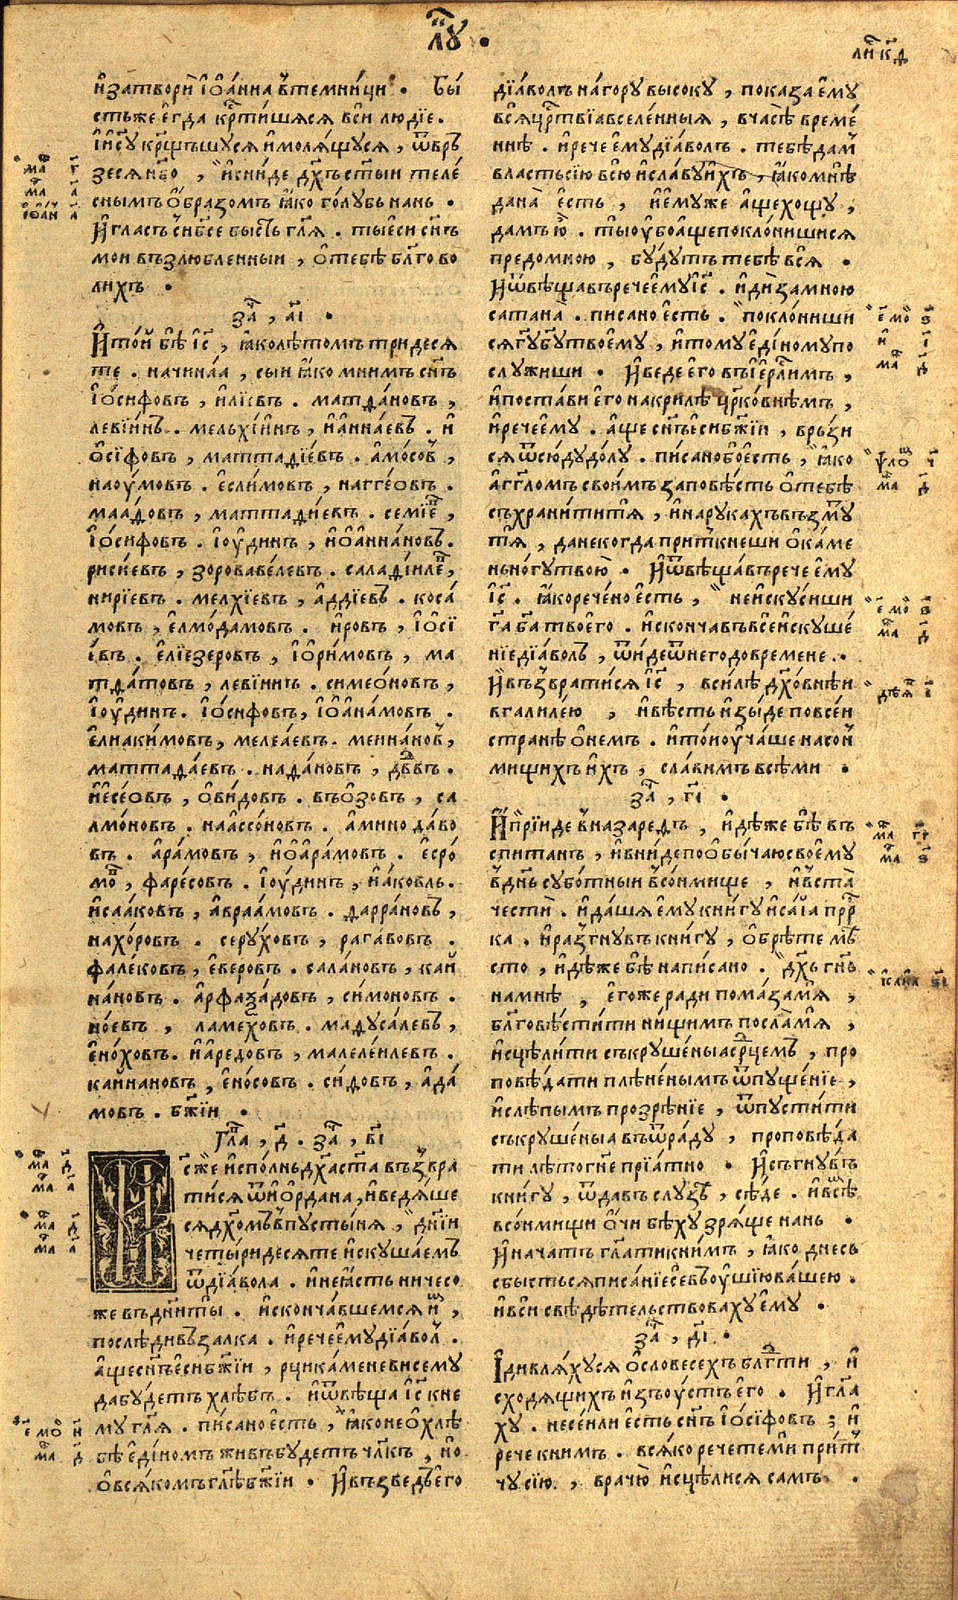 лꙋ҄ .
ли҄ к҃д
и҆затворѝ і҆ѡа́нна в̾темни́ци . Бы́
стьже є҆гда кр҃ти́шяся вси лю́діе .
І҆і҃сꙋ кр҃щъшꙋся и҆моля́щꙋся , ѿвръ
зеся не́бо , и҆сни́де дх҃ъ ст҃ыи теле́
снымъ ѻ҆́бразомъ ꙗ҆́ко го́лꙋбь нань .
И҆ гласъ с̾нб҃се бы́сть гл҃я . ты є҆си сн҃ъ
мои възлю́бленныи , ѻ҆тебѣ бл҃гово
лихъ .
за҄ , а҃і .
И҆ то́й бѣ і҆с҃ , ꙗ҆́ко лѣ́томъ три́деся
те . начина́а , сыи ꙗ҆́ко мни́мъ сн҃ъ
і҆ѻ́сифовъ , и҆лі́евъ . матѳа́новъ ,
леві́инъ . мельхі́инъ , и҆а҆нна́евъ . и҆
ѻ҆сі́фовъ , маттаѳі́евъ . а҆мо́сов̾ ,
наоу́мовъ . є҆сли́мовъ , нагге́овъ .
маа́ѳовъ , маттаѳи́евъ . семіе҄ ,
і҆ѻ́сифовъ . і҆ѻу́динъ , и҆ѻ҆а́нна́новъ .
риси́евъ , зороваве́левъ . салаѳі́иле҄ ,
нирі́евъ . мелхі́евъ , а҆дді́евъ . коса́
мовъ , є҆лмо́дамовъ . и҆́ровъ , і҆ѻсі
і́въ . є҆лїезеровъ , і҆ѻри́мовъ , ма
тѳа́товъ , леві́инъ . симео́новъ ,
і҆ѻу́динъ . і҆ѻ́сифовъ , і҆ѻа҆на́мовъ .
є҆лиаки́мовъ , мелеа́евъ . меина́нов̾ ,
маттаѳа́евъ . наѳа́новъ , дв҃двъ .
и҆есе́овъ , ѻ҆ви́довъ . въѻ҆́зовъ , са
лмо́новъ . наассо́новъ . а҆мино да́во
въ . а҆ра́мовъ , и҆ѻ҆а҆ра́мовъ . є҆сро́
мо҄ , фаре́совъ . і҆ѻу́динъ , и҆а́ковль .
и҆саа́ковъ , а҆враа́мовъ . ѳарра́новъ ,
нахо́ровъ . серꙋ́ховъ , рага́вовъ .
фале́ковъ , є҆́веровъ . сала́новъ , каи
на́новъ . а҆рфаѯа́довъ , си́моновъ .
но́евъ , ламе́ховъ . маѳꙋса́левъ ,
є҆но́ховъ . и҆а҆́редовъ , малеле́илевъ .
каина́новъ , є҆но́совъ . си́ѳовъ , а҆да́
мовъ . бж҃іи .
гла҄ , д҃ . за҄ , в҃і
І҆с҃же и҆спо́лнь дх҃а ст҃а възвра
ти́ся ѿ и҆ѻ҆рдана , и҆ведя́ше
ся дх҃омъ в̾пꙋсты́ня , дн҃іи
четы́ридесяте и҆скꙋша́емъ
ѿ дїа́вола . и҆неꙗ҆́сть ничесо
же въ дн҃и ты́ . и҆скончя́вшемся и҄ ,
послѣ́дивъзалка . и҆рече є҆мꙋ дїа́вол҄ .
а҆́ще сн҃ъ є҆си бж҃іи , рци ка́мене ви семꙋ
да бꙋ́детъ хлѣ́бъ . и҆ѿвѣща і҆с҃ к̾не
мꙋ гл҃я . пи́сано є҆сть , ꙗ҆́ко не ѻ҆ хлѣ́
бѣ є҆ді́номъ живъ бꙋ́детъ чл҃къ , но
ѻ҆ вся́комъ гл҃ѣ бж҃іи . И҆възведъ є҆го
дїа́волъ на горꙋ высо́кꙋ , показа є҆мꙋ
вся цр҃твїа вселе́нныя , в̾часѣ вре́ме
ннѣ . и҆рече є҆мꙋ дїа́волъ . тебѣ дам̾
власть сію всю и҆сла́вꙋ и҆́хъ , ꙗ҆́ко мнѣ
дана̀ є҆сть , и҆є҆мꙋже а҆́ще хощꙋ ,
дамъ ю҆ . ты оу҆бо а҆́ще покло́нишися
предомною , бꙋ́дꙋтъ тебѣ вся .
И҆ѿвѣща́въ рече є҆мꙋ і҆с҃ . и҆дѝ за мною
сатана̀ . писано є҆сть . покло́ниши
ся гꙋ҃ бꙋ҃ твоемꙋ , и҆томꙋ є҆ді́номꙋ по
слꙋ́жиши . И҆веде є҆го въ і҆ер҃лимъ ,
и҆поста́ви є҆го на крилѣ̀ цр҃ко́внѣмъ ,
и҆рече є҆мꙋ . а҆́ще сн҃ъ є҆си бж҃іи , връзи
ся ѿсю́дꙋ до́лꙋ . пи́сано бо є҆сть , ꙗ҆́ко
а҆гг҃ломъ свои́мъ заповѣ́сть ѻ҆ тебѣ
съхрани́ти тя̀ , и҆на рꙋка́хъ възмꙋ҄
тя̀ , да некогда при́ткнеши ѻ҆ ка́ме
нь но́гꙋ твою̀ . И҆ѿвѣща́въ рече є҆мꙋ
і҆с҃ . ꙗ҆́ко рече́но є҆сть , не и҆скꙋ́сиши
г҃а б҃а твоего . и҆сконча́въ все и҆скꙋше́
ніе дїа́волъ , ѿи́де ѿ него до вре́мене .
И҆възврати́ся і҆с҃ , в̾си́лѣ дх҃о́внѣи
в̾галиле́ю , и҆вѣ́сть и҆зы́де по все́и
странѣ̀ ѻ҆ не́мъ . и҆то́и оу҆ча́ше на со҄
мищихъ и҆́хъ , сла́вимъ всѣ́ми .
за҄ , г҃і .
И҆прїи́де в̾назаре́ѳъ , и҆дѣже бѣ въ
спита́нъ , и҆вни́де по ѻ҆бы́чаю своемꙋ
в̾дн҃ь сꙋбо́тныи в̾со́нмище , и҆вста̀
честѝ . и҆да́шя є҆мꙋ кни́гꙋ и҆са́їа прр҃
ка . и҆разгнꙋ́въ кни́гꙋ , ѻ҆брѣ́те мѣ́
сто , и҆дѣ́же бѣ напи́сано . дх҃ъ гн҃ь
на мнѣ̀ , є҆го́же ради пома́за мя̀ ,
бл҃говѣсти́ти ни́щимъ посла́ мя̀ ,
и҆сцѣли́ти съкрꙋше́ныа ср҃цемъ , про
повѣ́дати плѣне́нымъ ѿпꙋще́ніе ,
и҆слѣпы́мъ прозрѣ́ніе , ѿпꙋсти́ти
съкрꙋше́ныа въ ѿра́дꙋ , проповѣ́да
ти лѣ́то гн҃е прїа́тно . И҆съгнꙋ́въ
кни́гꙋ , ѿда́въ слꙋзѣ̀ , сѣ́де . и҆всѣ҄
в̾со́нмищи ѻ҆́чи бѣ́хꙋ зря́ще нань .
И҆нача́тъ гл҃ати к̾ни́мъ , ꙗ҆́ко днесь
сбы́сться писа́ніе се въ оу҆шію ва́шею .
и҆вси свѣдѣ́тельствовахꙋ є҆мꙋ .
за҄ , д҃і .
І҆дивля́хꙋся ѻ҆ словесе́хъ блг҃ти , и҆
сходя́щихъ и҆зъ оу҆́стъ є҆го . И҆гл҃а
хꙋ . не се́и ли є҆сть сн҃ъ і҆ѻ́сїфовъ ; и҆
рече к̾ни́мъ . вся́ко рече́те ми при́т҄
чꙋ сію , врачю̀ и҆сцѣли́ся самъ .